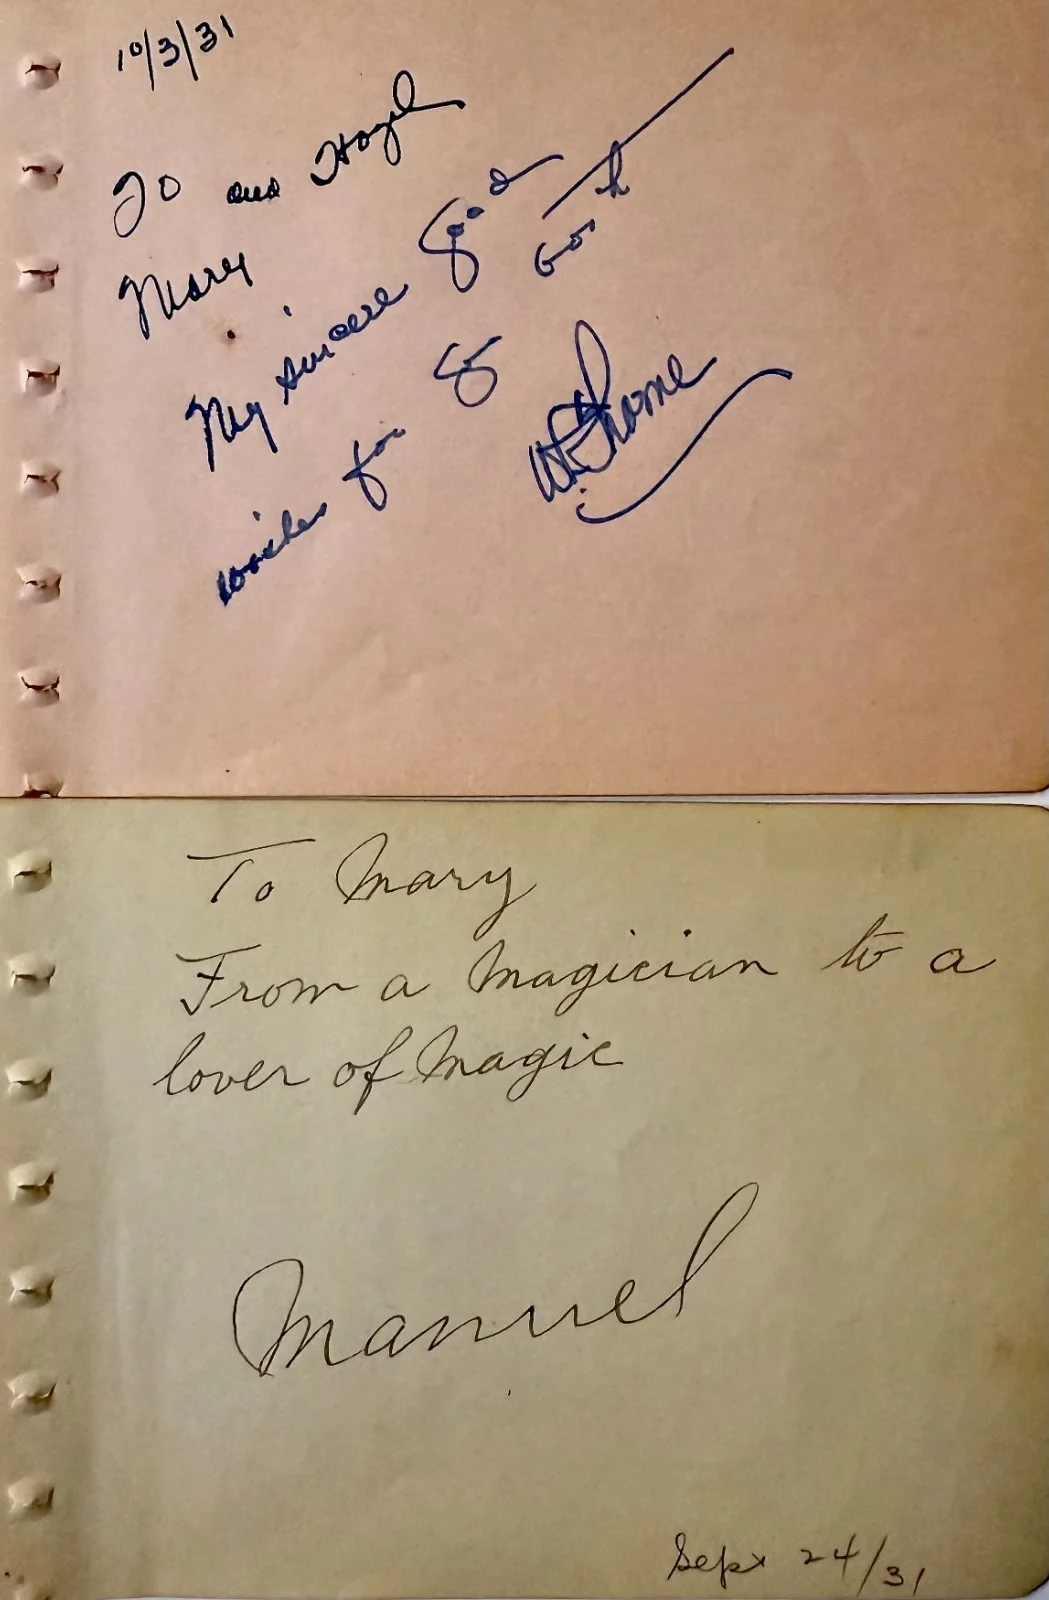 10/3/31
To and Hazel
Mary
My sincere good
wishes for
Both
To Mary
From a magician to a
lover of magic
Manuel
Sept 24/31